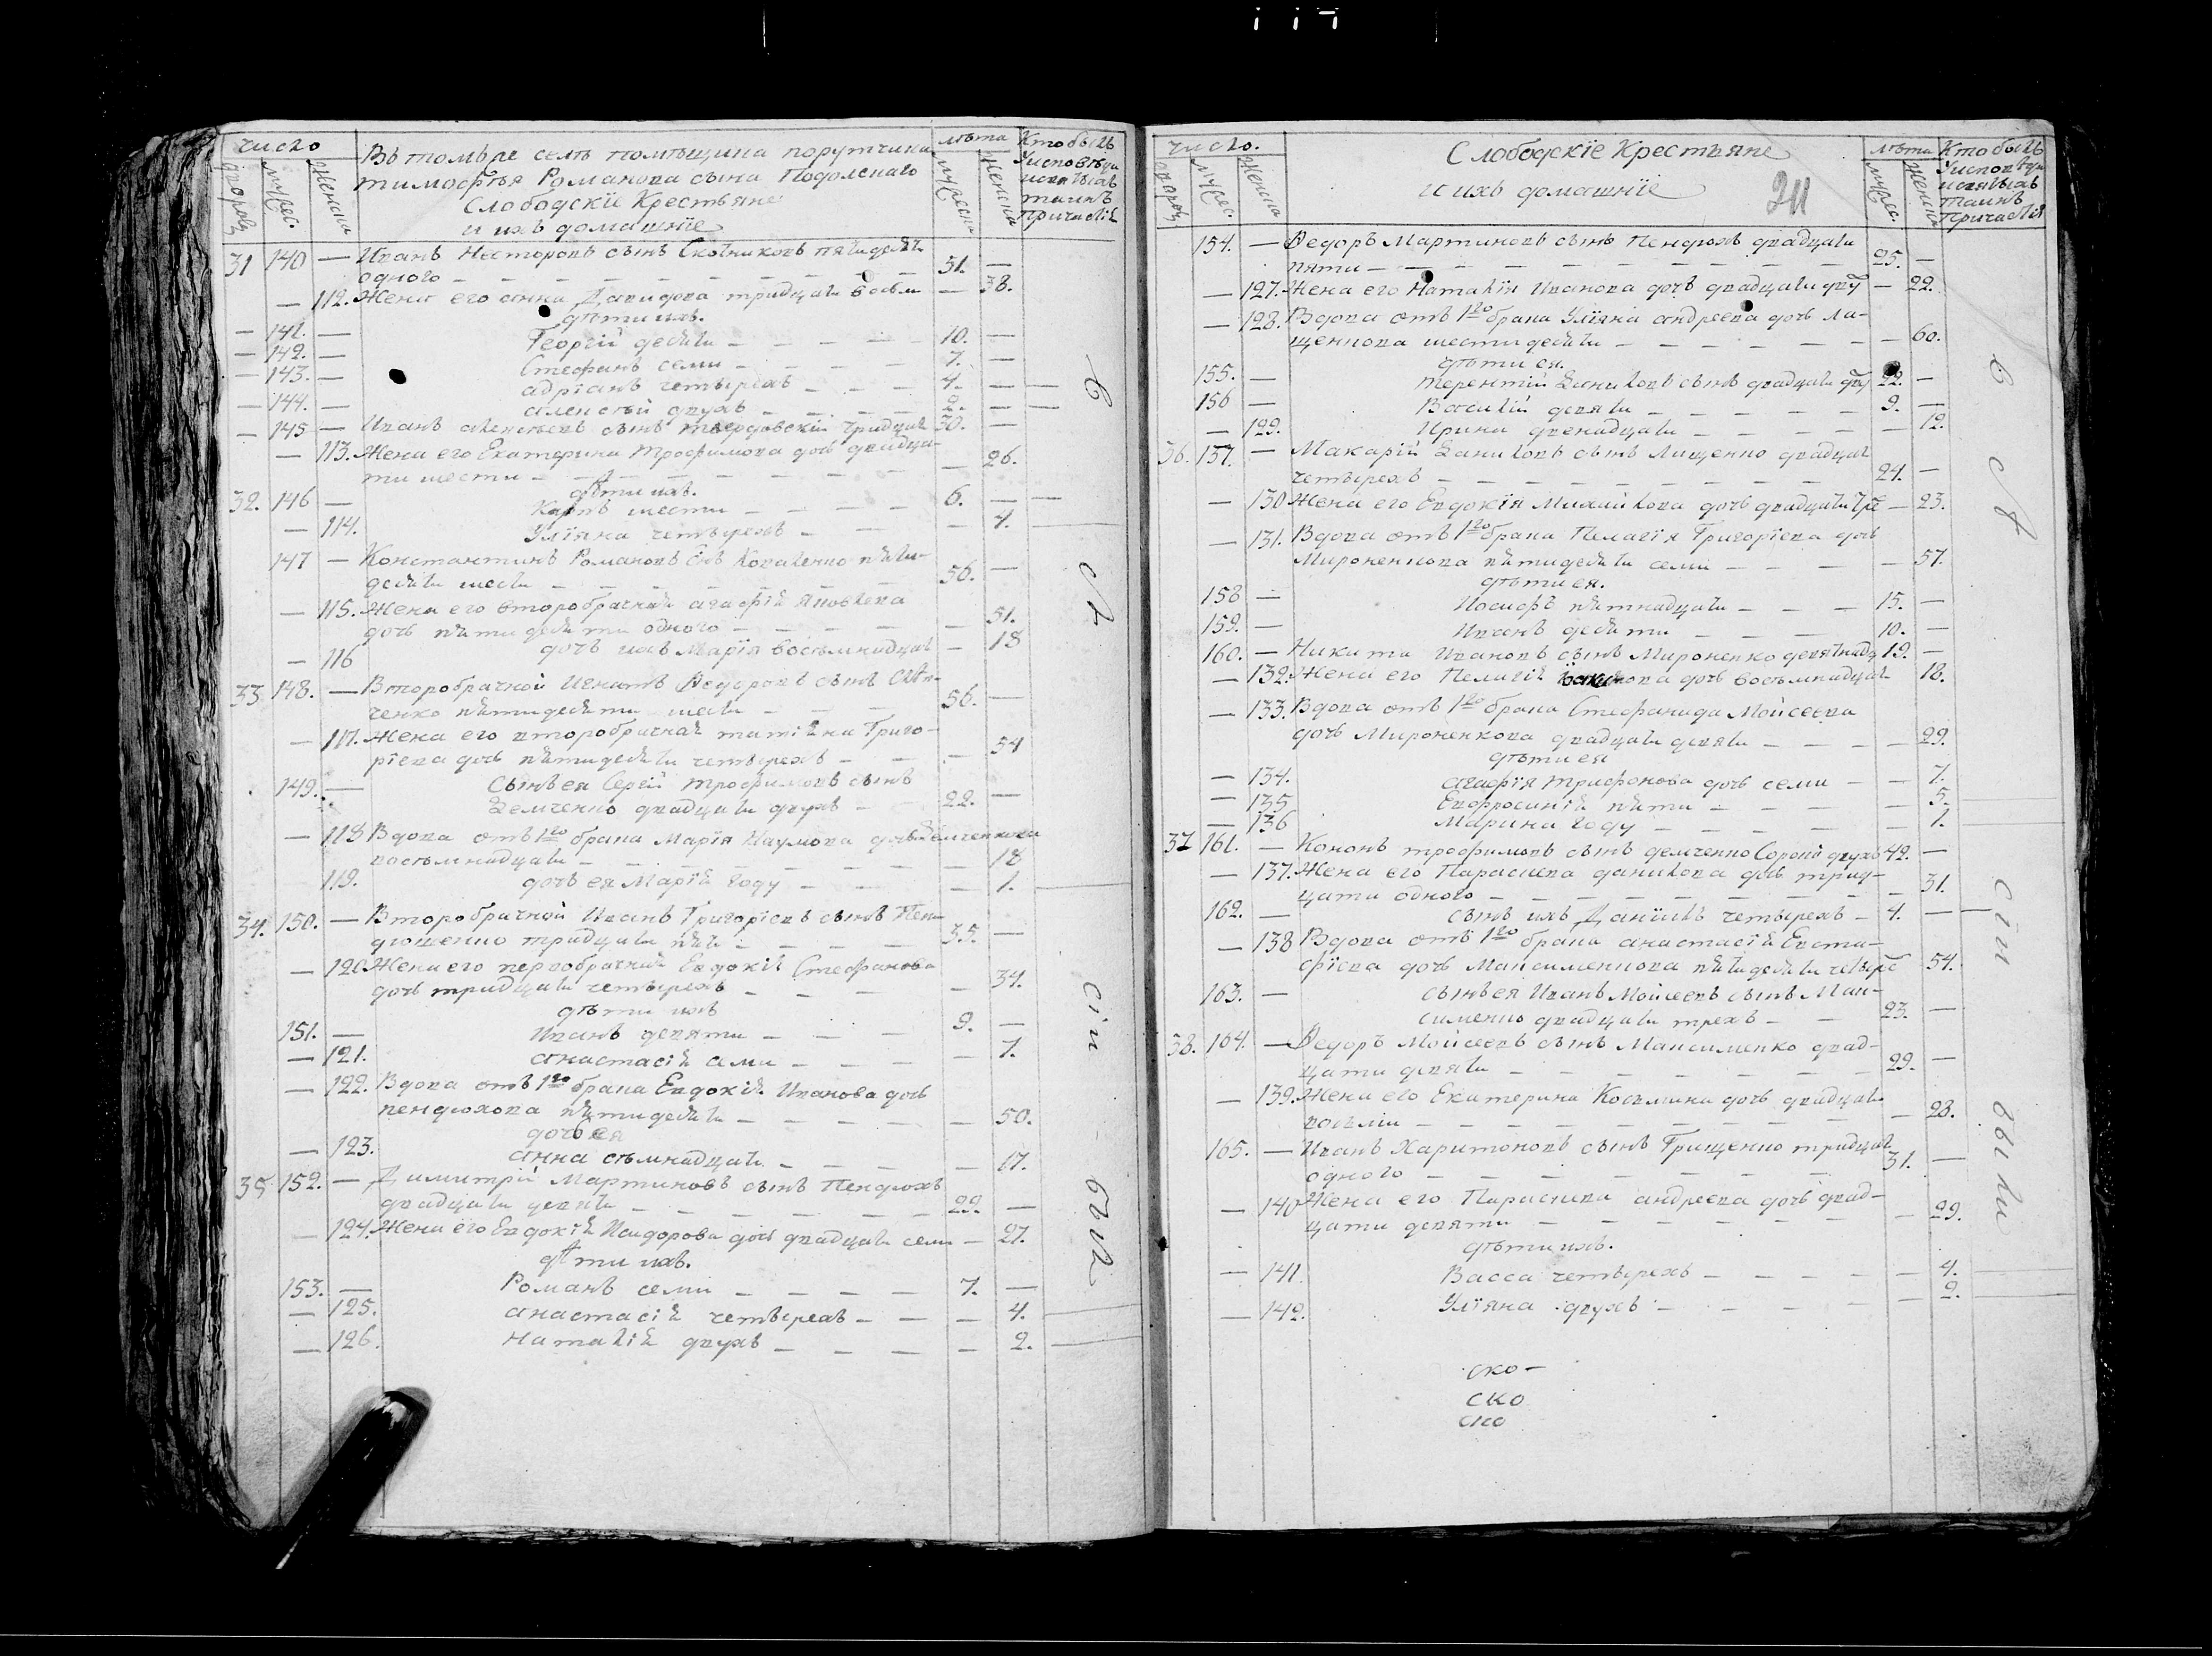 число
дворовъ
мужес.
женска
Въ томъ же селѣ помѣщика порутчика
тимофѣя Романова сына Подолскаго
Слободскіе Крестьяне
и ихъ домашніе
лѣта
мужеска
женска
Кто былъ
Уисповѣди
исвятыхъ
таинъ
Причастія
31 140 — Иванъ Несторовъ сынъ Скотниковъ пятидесятъ
одного — 51. —
— 112. Жена его анна Давидова тридцати восьми — 38.
дѣти ихъ.
— 141. — Георгій десяти — 10. —
— 142. — Стефанъ семи — 7. —
— 143. — адріанъ четырехъ — 4. —
— 144. — алексѣй двухъ — 2. —
— 145 — Иванъ алексѣевъ сынъ твердовскій тридцати 30. —
— 113. Жена его Екатерина трофимова дочь двадца-
ти шести — 26.
дѣти ихъ.
32. 146 — Карпъ шести — 6. —
— 114. Уліяна четырехъ — 4.
147 — Константинъ Романовъ снъ Коваленко пяти-
десяти шести — 56. —
— 115. Жена его второбрачная агафія Яковлева
дочь пятидесяти одного — 51.
— 116 дочь ихъ Марія восьмнадцати — 18
33 148. — Второбрачной Игнатъ Ѳедоровъ сынъ
ченко пятидесяти шести — 56. —
— 117. Жена его второбрачная татіяна Григо-
ріева дочь пятидесяти четырехъ — 54
149. — Сынъ ея Сергій трофимовъ сынъ
Демченко двадцати двухъ — 22. —
— 118 Вдова отъ 1го брака Марія Наумова дочь Демченкова
восьмнадцати — 18
119. дочь ея Марія году — 1.
34. 150. — Второбрачной Иванъ Григоріевъ сынъ Пен-
дюшенко тридцати пяти — 35. —
— 120 Жена его первобрачная Евдокія Стефанова
дочь тридцати четырехъ — 34.
дѣти ихъ
151. — Иванъ девяти — 9. —
— 121. анастасія семи — 7.
— 122. Вдова отъ 1го брака Евдокія Иванова дочь
пендюхова пятидесяти — 50.
дочь ея
— 123. анна семьнадцати — 17.
35 152. — Димитрій Мартиновъ сынъ Пендюхъ
двадцати девяти — 29. —
— 124. Жена его Евдокія Исидорова дочь двадцати семи — 27.
дѣти ихъ.
153. — Романъ семи — 7. —
— 125. анастасія четырехъ — 4.
— 126. Наталія двухъ — 2.
в сѣ сіи были
число.
дворовъ
мужес.
женска
Слободскіе Крестьяне
и ихъ домашніе
24
лѣта
мужес.
женска
Кто былъ
Уисповѣди
исвятыхъ
Таинъ
Причастія
154. — Ѳедоръ Мартиновъ сынъ Пендюхъ двадцати
пяти — 25. —
— 127. Жена его Наталія Иванова дочь двадцати дву — 22.
— 128. Вдова отъ 1го брака Уліяна андреева дочь Ли-
щенкова шестидесяти — 60.
дѣти ея.
155. — терентій Даниловъ сынъ двадцати дву 22. —
156 — Василій девяти — 9. —
— 129. Ирина двенадцати — 12.
36. 157. — Макарій Даниловъ сынъ Лищенко двадцати
четырехъ — 24. —
— 130 Жена его Евдокія Михайлова дочь двадцати тре — 23.
— 131. Вдова отъ 1го брака Пелагія Григоріева дочь
Мироненкова пятидесяти семи — 57.
дѣти ея.
158 — Иосифъ пятнадцати — 15. —
159. — Иванъ десяти — 10. —
160. — Никита Ивановъ сынъ Мироненко девятнадц 19. —
— 132. Жена его Пелагія дочь восьмнадцати 18.
— 133. Вдова отъ 1го брака Стефанида Мойсеева
дочь Мироненкова двадцати девяти — 29.
дѣти ея
— 134. агафія трифонова дочь семи — 7.
— 135 Евфросинія пяти — 5.
— 136 Марина году — 1.
37 161. — Кононъ трофимовъ сынъ демченко Сорокъ двухъ 42. —
— 137. Жена его Параскева данилова дочь трид-
цати одного — 31.
162. — сынъ ихъ Даніилъ четырехъ — 4. —
— 138 Вдова отъ 1го брака анастасія Евста-
фіева дочь Максименкова пятидесяти четыре 54.
163. — сынъ ея Иванъ Мойсеевъ сынъ Мак-
сименко двадцати трехъ — 23. —
38. 164. — Ѳедоръ Мойсеевъ сынъ Максименко двад-
цати девяти — 29. —
— 139. Жена его Екатерина Косьмина дочь двадцати
восьми — 28.
165. — Иванъ Харитоновъ сынъ Грищенко тридцати
одного — 31. —
— 140 Жена его Параскева андреева дочь двад-
цати девяти — 29.
дѣти ихъ.
— 141. Васса четырехъ — 4.
— 142. Уліяна двухъ — 2.
в сѣ сіи были
ско-
ско
ско